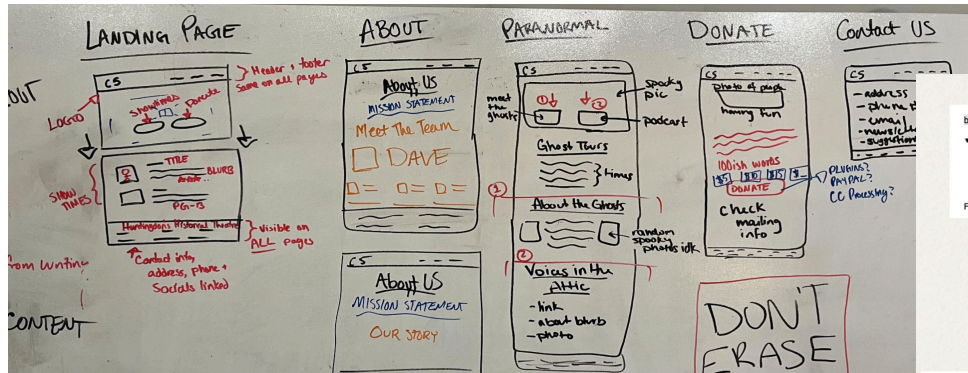 LANDING PAGE
CS
Header + footer
same on all pages
LOGO
Showtimes
Donate
SHOW
TIMES
TITLE
BLURB
PG-13
Huntingdons Historical Theatre
Visible on
ALL pages
Contact info,
address, phone +
Socials linked
OUT
from writing
CONTENT
ABOUT
CS
About US
MISSION STATEMENT
Meet The Team
DAVE
CS
About US
MISSION STATEMENT
OUR STORY
PARANORMAL
CS
spooky
pic
meet
the
ghosts
①
②
podcast
Ghost Tours
times
①
About the Ghosts
random
spooky
photos idk
②
Voices in the
Attic
- link
- about blurb
- photo
DONATE
CS
photo of people
having fun
100ish words
$5 $10 $15 $_
DONATE
PLUGINS?
PAYPAL?
CC Processing?
check
mailing
info
DON'T
ERASE
Contact US
CS
- address
- phone
- email